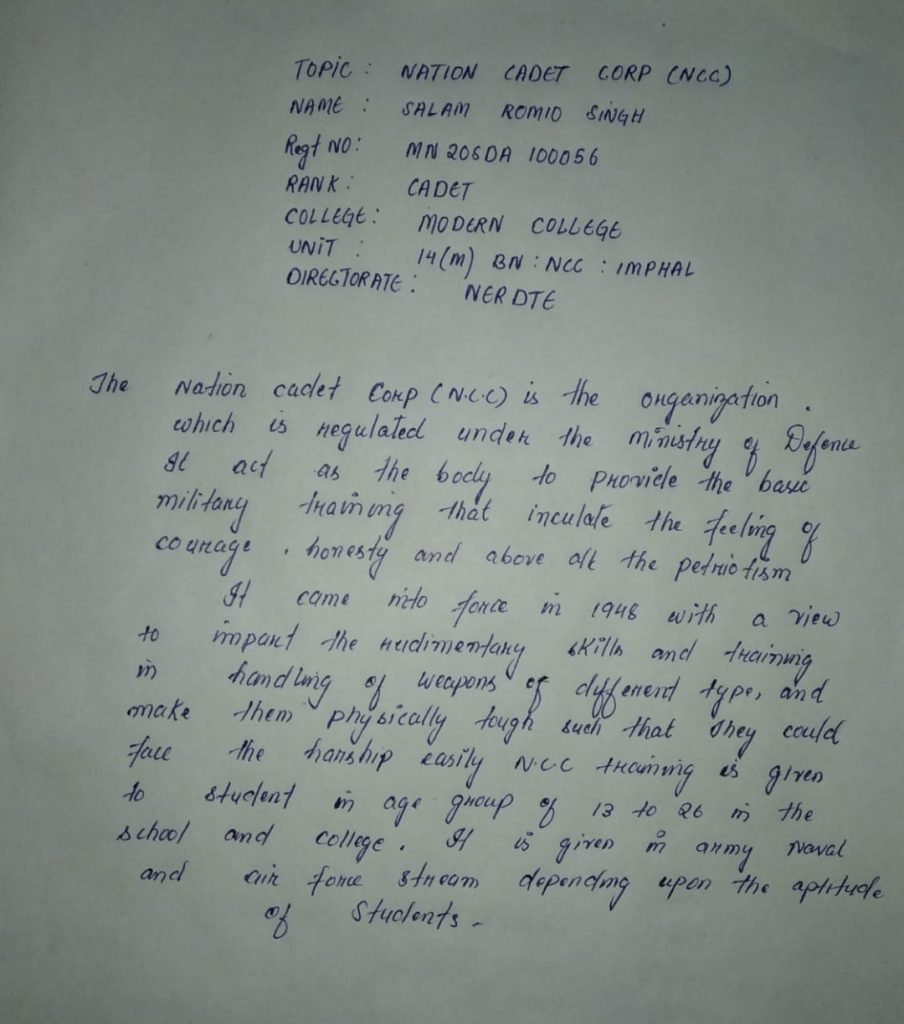 TOPIC : NATION CADET CORP (NCC)
NAME : SALAM ROMIO SINGH
Regt NO: MN 20SDA 100056
RANK: CADET
COLLEGE: MODERN COLLEGE
UNIT : 14(M) BN : NCC : IMPHAL
DIRECTORATE : NER DTE
The Nation cadet Corp (N.C.C) is the organization .
which is regulated under the ministry of Defence
It act as the body to provide the basic
military training that inculate the feeling of
courage , honesty and above all the petriotism
It came into force in 1948 with a view
to impart the rudimentary skills and training
in handling of weapons of different type, and
make them physically tough such that they could
face the harship easily N.C.C training is given
to student in age group of 13 to 26 in the
school and college . It is given in army Naval
and air force stream depending upon the aptitude
of Students -